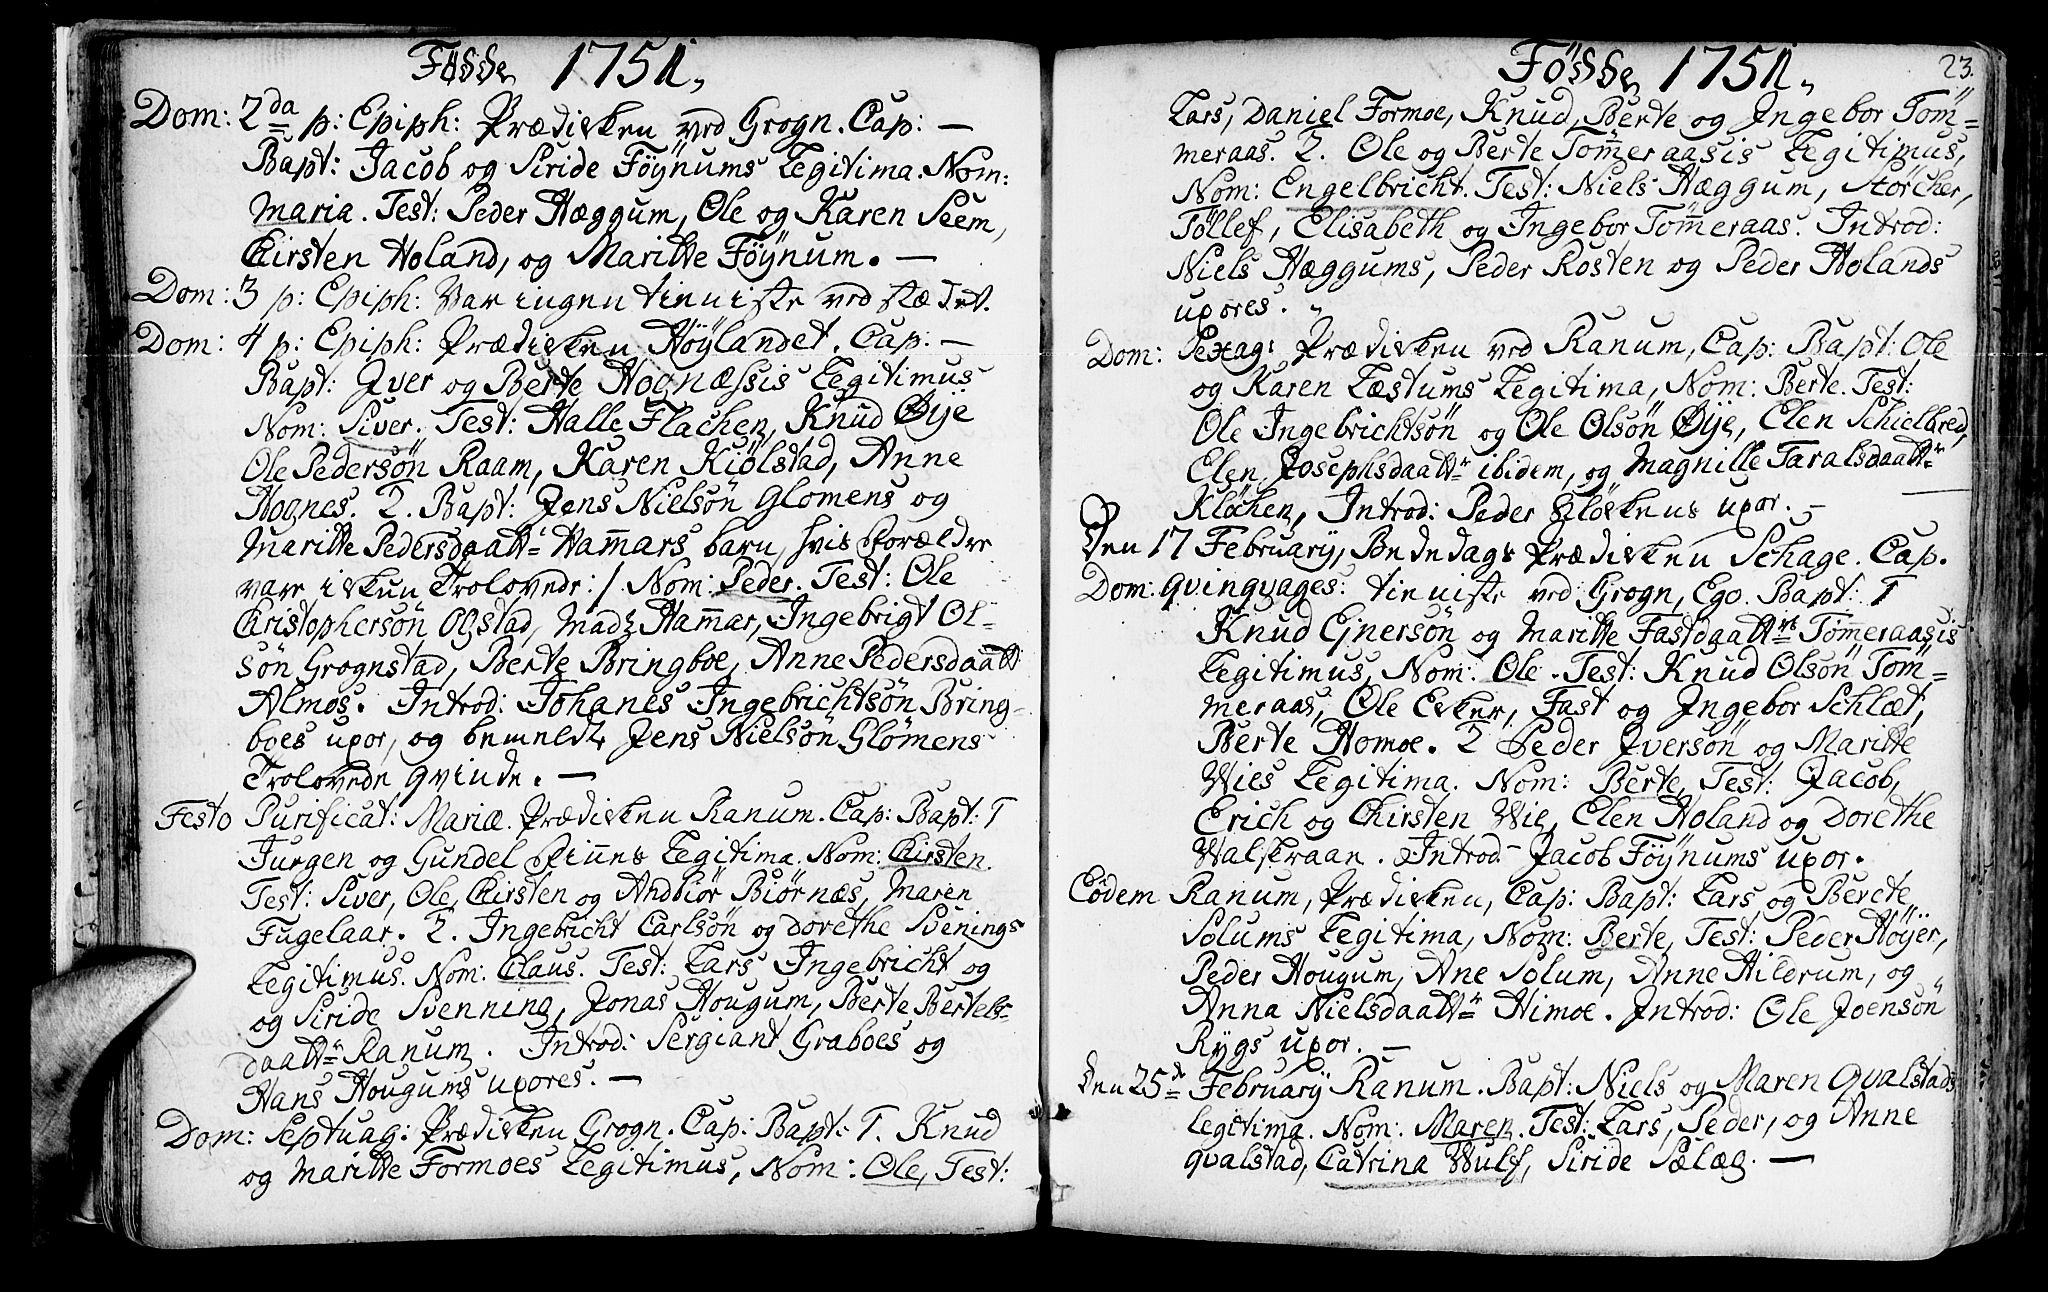 Födde 1751.
Dom: 2da p: Epiph: Prædiken ved Grogn. Cap: —
Bapt: Jacob og Siride Föÿnums Legitima. Nom:
Maria. Test: Peder Hæggum, Ole og Karen Seem,
Chirsten Holand, og Maritte Föÿnum. —
Dom: 3 p: Epiph: Var ingen tieniste ved stædet.
Dom: 4 p: Epiph: Prædiken Höÿlandet. Cap: —
Bapt: Iver og Berte Hognæssis Legitimus
Nom: Siver. Test: Halle Flachen, Knud Øije
Ole Pedersön Raam, Karen Kiölstad, Anne
Hognes. 2. Bapt: Jens Nielsön Glomens og
Maritte Pedersdaattr Hamars barn, hvis Forældre
var ikun Trolovede :/ Nom: Peder. Test: Ole
Christophersön Ogstad, Madz Hamar, Ingebrigt Ol-
sön Grognstad, Berte Bringboe, Anne Pedersdaatt
Almos. Introd: Johanes Ingebrichtsön Bring-
boes uxor, og bemelde Jens Nielsön Glömens
Trolovede qvinde. —
Festo Purificat: Mariæ. Prædiken Ranum. Cap: Bapt: 1
Jurgen og Gundel Finnes Legitima. Nom: Chirsten.
Test: Siver, Ole, Chirsten og Andbiör Biörnæs, Maren
Fugelaar. 2. Ingebricht Carlsön og Dorethe Svenings
Legitimus. Nom: Claus. Test: Lars Ingebricht og
og Siride Svenning, Jonas Hougum, Berte Bertels-
daattr Ranum. Introd: Sergiant Graboes og
Hans Hougums uxores. —
Dom: Septuag: Prædiken Grogn. Cap: Bapt: 1. Knud
og Maritte Formoes Legitimus, Nom: Ole, Test:
Födde 1751.
23.
Lars, Daniel Formoe, Knud, Berte og Ingebor Töm-
meraas. 2. Ole og Berte Tömeraasis Legitimus,
Nom: Engelbricht. Test: Niels Hæggum, Störcher,
Töllef, Elisabeth og Ingebor Tömeraas. Introd:
Niels Hæggums, Peder Rosten og Peder Holands
uxores.
Dom: Sexag: Prædiken ved Ranum, Cap: Bapt: Ole
og Karen Læstums Legitima, Nom: Berte. Test:
Ole Ingebrichtsön og Ole Olsön Øije, Elen Schielbred,
Elen Josephsdaattr ibidem, og Magnille Taralsdaattr
Klöchen, Introd: Peder Klöckens uxor. —
Den 17 Februarÿ, Bededags Prædiken Schage. Cap.
Dom: Qvinqvages: tieniste ved Grogn, Ego. Bapt: 1
Knud Ejnersön og Maritte Fastdaattrs Tömeraasis
Legitimus, Nom: Ole. Test: Knud Olsön Töm-
meraas, Ole Ecker, Fast og Ingebor Schlæt,
Berte Homoe. 2 Peder Iversön og Maritte
Wies Legitima. Nom: Berte, Test: Jacob,
Erich og Chirsten Wie, Elen Holand og Dorethe
Walskraan. Introd: Jacob Föÿnums uxor.
Eôdem Ranum, Prædiken, Cap: Bapt: Lars og Berete
Solums Legitima, Nom: Berte, Test: Peder Höÿer,
Peder Hougum, Ane Solum, Anne Hildrum, og
Anna Nielsdaattr Himoe. Introd: Ole Joensön
Rÿgs uxor. —
Den 25de Februarÿ Ranum. Bapt: Niels og Maren Qvalstads
Legitima. Nom: Maren. Test: Lars, Peder, og Anne
Qvalstad, Catrina Wulf, Siride Sælæg. —